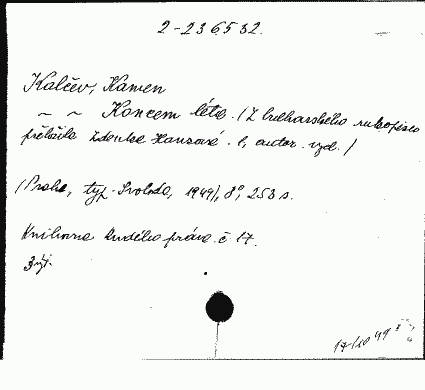 2-236532.
Kalčev, Kamen
~ ~ Koncem léta. (Z bulharského rukopisu
přeložila Zdenka Hanzová. 1. autor. vyd.)
(Praha, typ. Svoboda, 1949), 8°, 253 s.
Knihovna Rudého práva. č. 17.